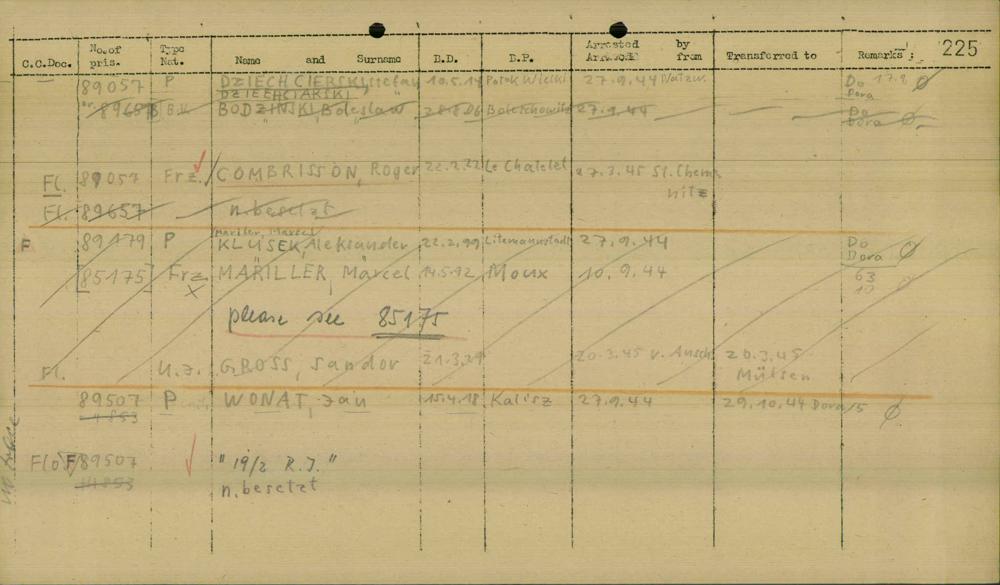 225
C.C.Doc. No.of pris. Type Nat. Name and Surname D.D. D.P. Arrested by from Transferred to Remarks
89057 P DZIECHCIERSKI, 10.5.14 27.9.44 Do Dora 17.9 Ø
DZIECHCIARSKI
B.V. BODZINSKI, Boleslaw 28.8.06 27.9.44 Do Dora Ø
Fl. 89057 Frz. COMBRISSON, Roger 22.2.22 Le Chatelet 27.3.45 St. Chem
nitz
Fl. 89657 n.besetzt
Mariller, Marcel
F 89479 P KLUSEK, Aleksander 22.2.99 Litzmannstadt 27.9.44 Do Dora Ø
[85175] Frz. MARILLER, Marcel 14.5.12 Moux 10.9.44 63
X 10
please see 85175
Fl. U.J. GROSS, Sandor 21.3.29 20.3.45 v. Ausch 20.3.45
Mülsen
89507 P WONAT, Jan 15.4.18 Kalisz 27.9.44 29.10.44 Dora/5 Ø
Flo F/89507 "19/2 R.J."
n.besetzt